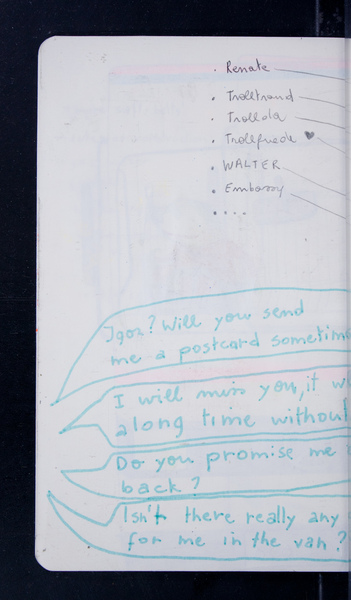 · Renate
· Trolltrand
· Trollola
· Trollfriede ♥
· WALTER
· Embassy
· . . .
Igor? Will you send
me a postcard sometim
I will miss you, it w
along time without
Do you promise me
back?
Isn't there really any
for me in the van?